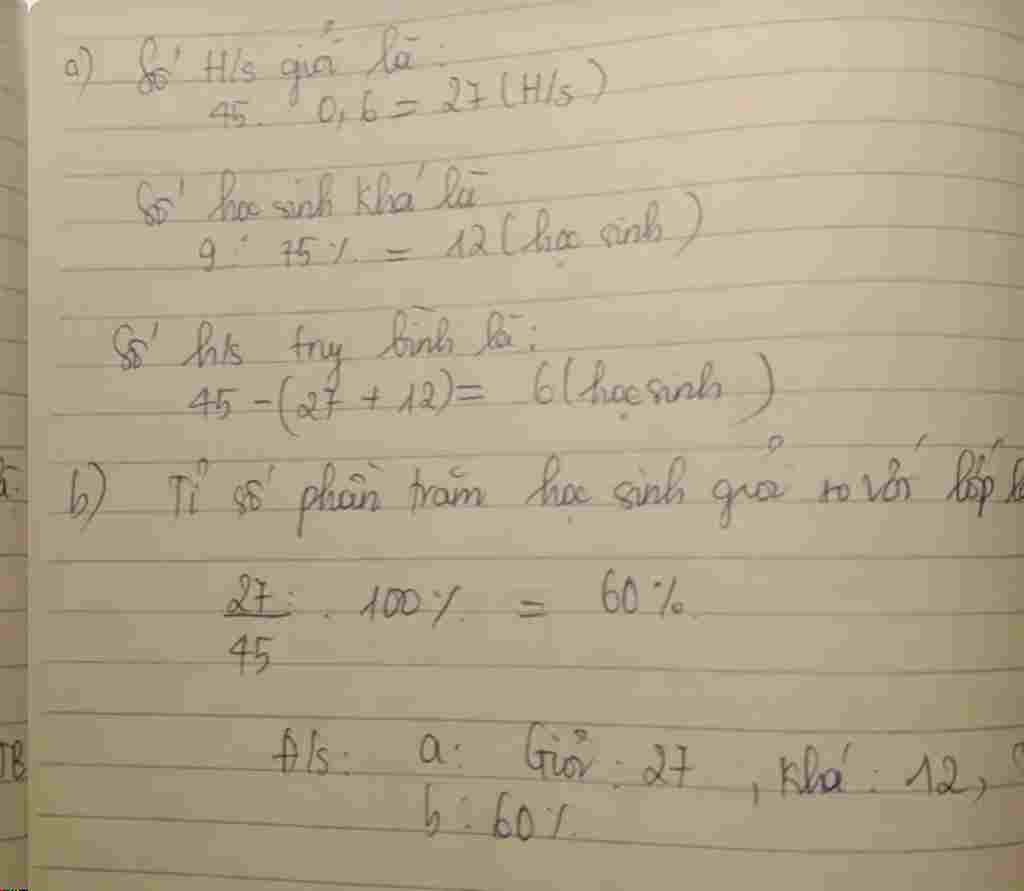 a) Số H/s giỏi là:
45. 0,6 = 27 (H/s)
Số học sinh khá là
9 : 75% = 12 (học sinh)
Số h/s trug bình là:
45 - (27 + 12) = 6 (học sinh)
b) Tỉ số phần trăm học sinh giỏi so với lớp
27
. 100% = 60%
45
TB
Đ/s: a: Giỏi: 27, Khá: 12,
b: 60%